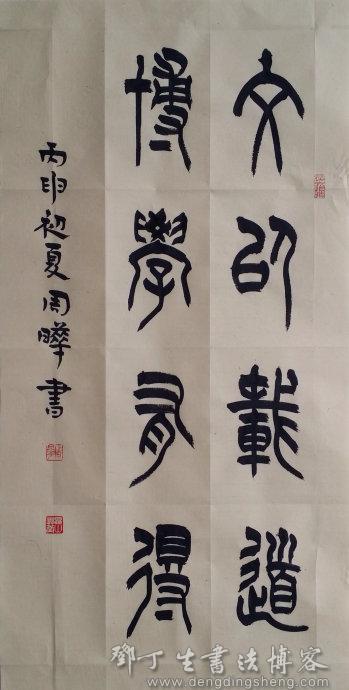 文以載道
博學為得
丙申初夏周曄書
鄧丁生書法博客
www.dengdingsheng.com